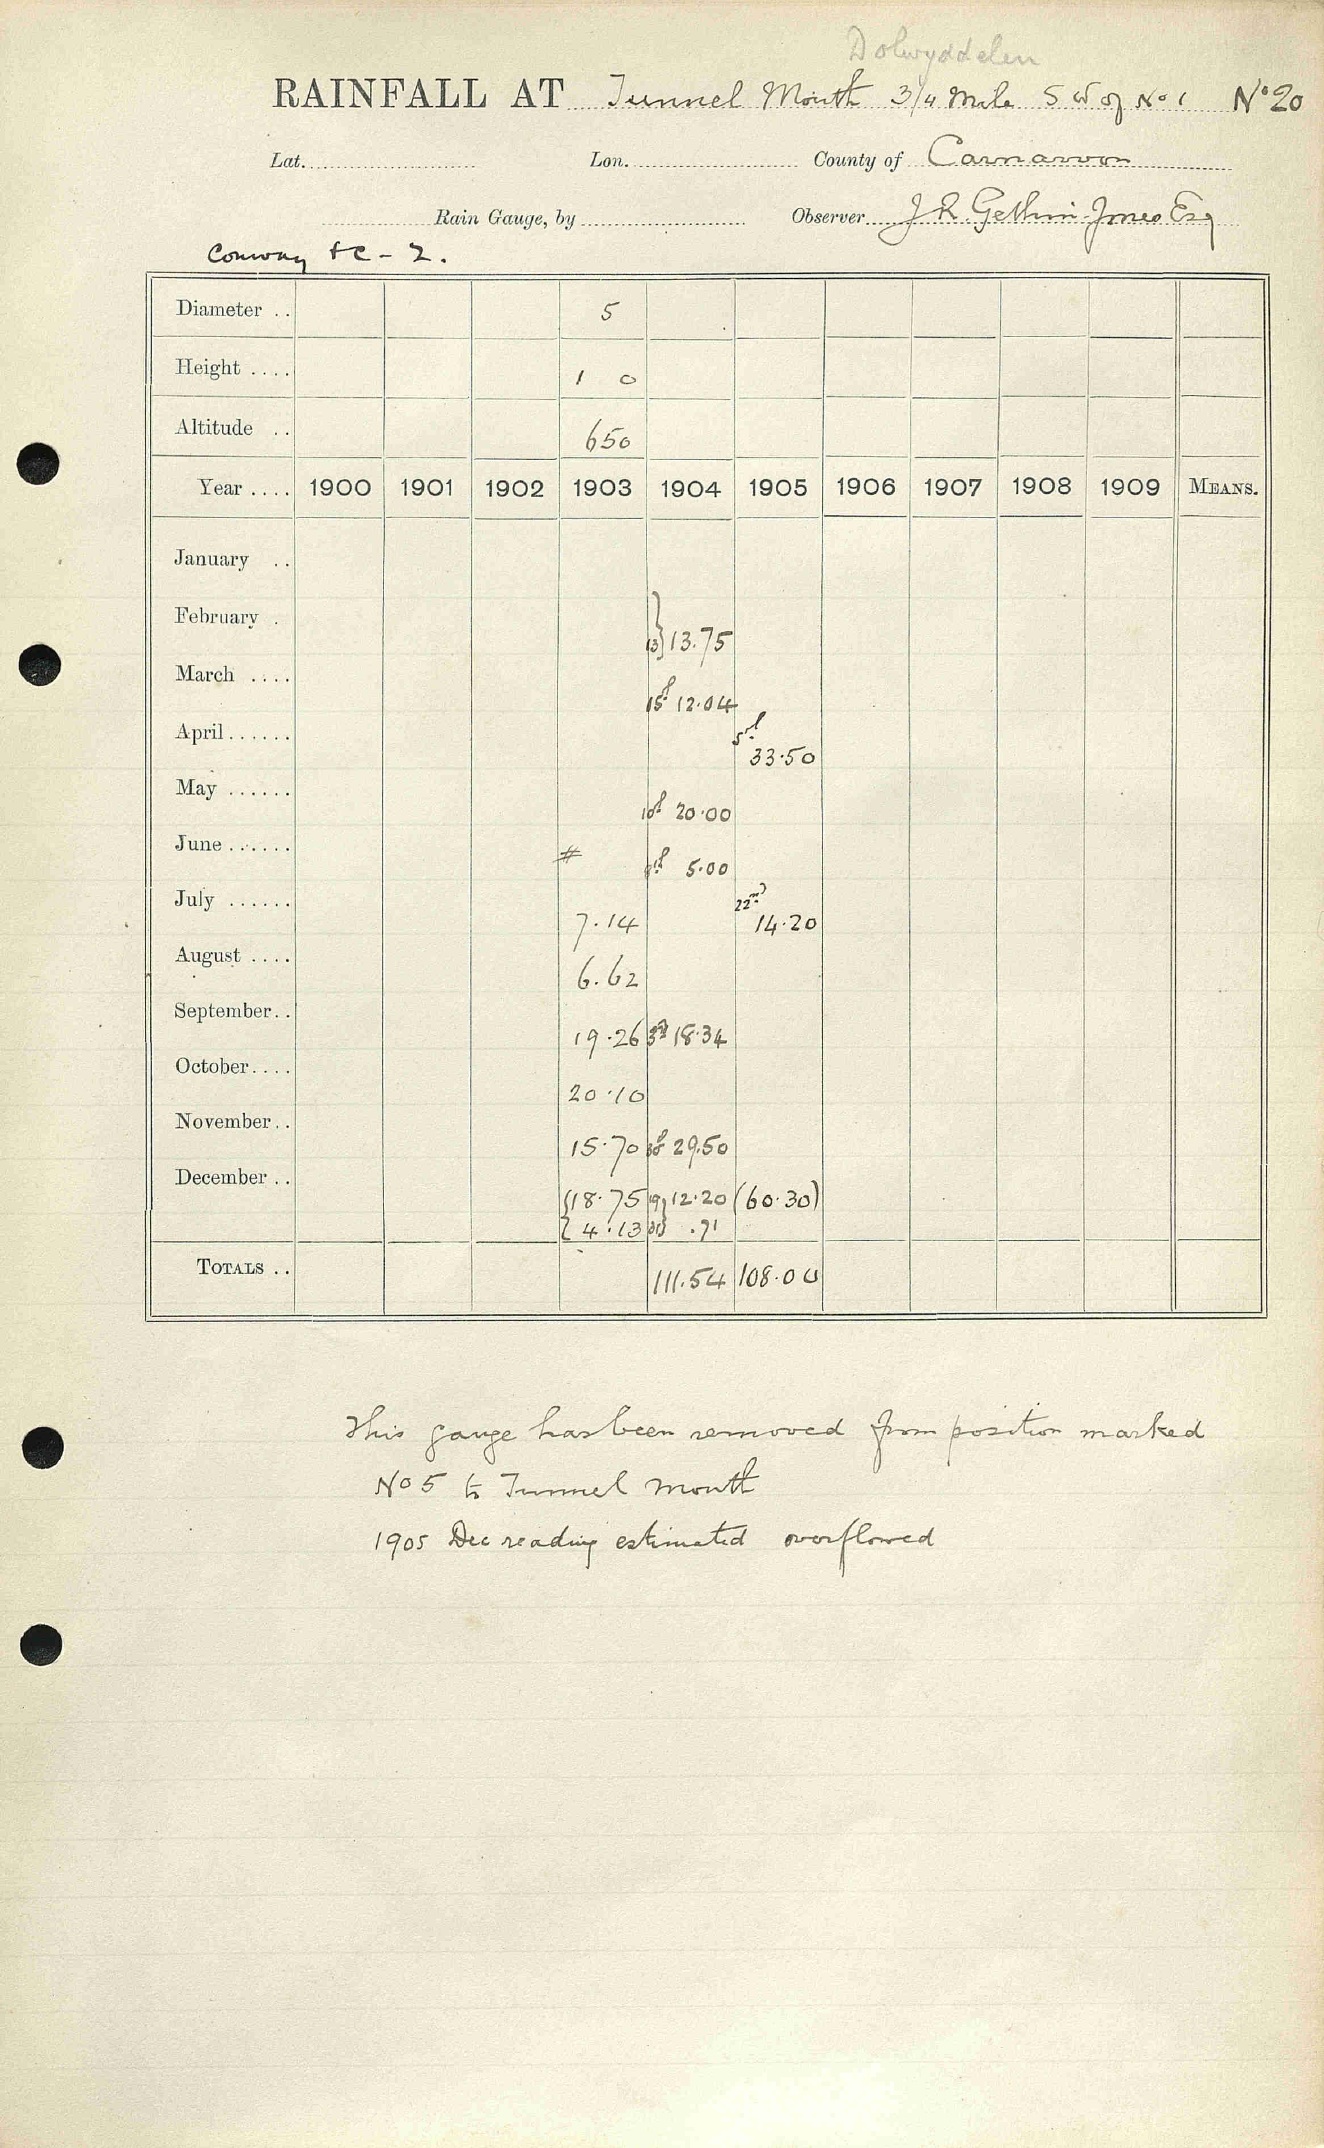 Dolwyddelen
RAINFALL AT Tunnel Mouth 3/4 Mile S W of No 1 No 20
Lat. Lon. County of Carnarvon
Rain Gauge, by Observer J R Gethin-Jones Esq
Conway &c - 2.
Diameter .. 5
Height .... 1 0
Altitude .. 650
Year .... 1900 1901 1902 1903 1904 1905 1906 1907 1908 1909 MEANS.
January ..
February . 13} 13.75
March .... 15th 12.04
April...... 5th 33.50
May ...... 10th 20.00
June ...... # 5.00
July ...... 7.14 22nd 14.20
August .... 6.62
September.. 19.26 3rd 18.34
October.... 20.10
November.. 15.70 29.50
December .. {18.75 19} 12.20 (60.30)
{ 4.13 31} .71
TOTALS .. 111.54 108.00
This gauge has been removed from position marked
No 5 to Tunnel Mouth
1905 Dec reading estimated overflowed